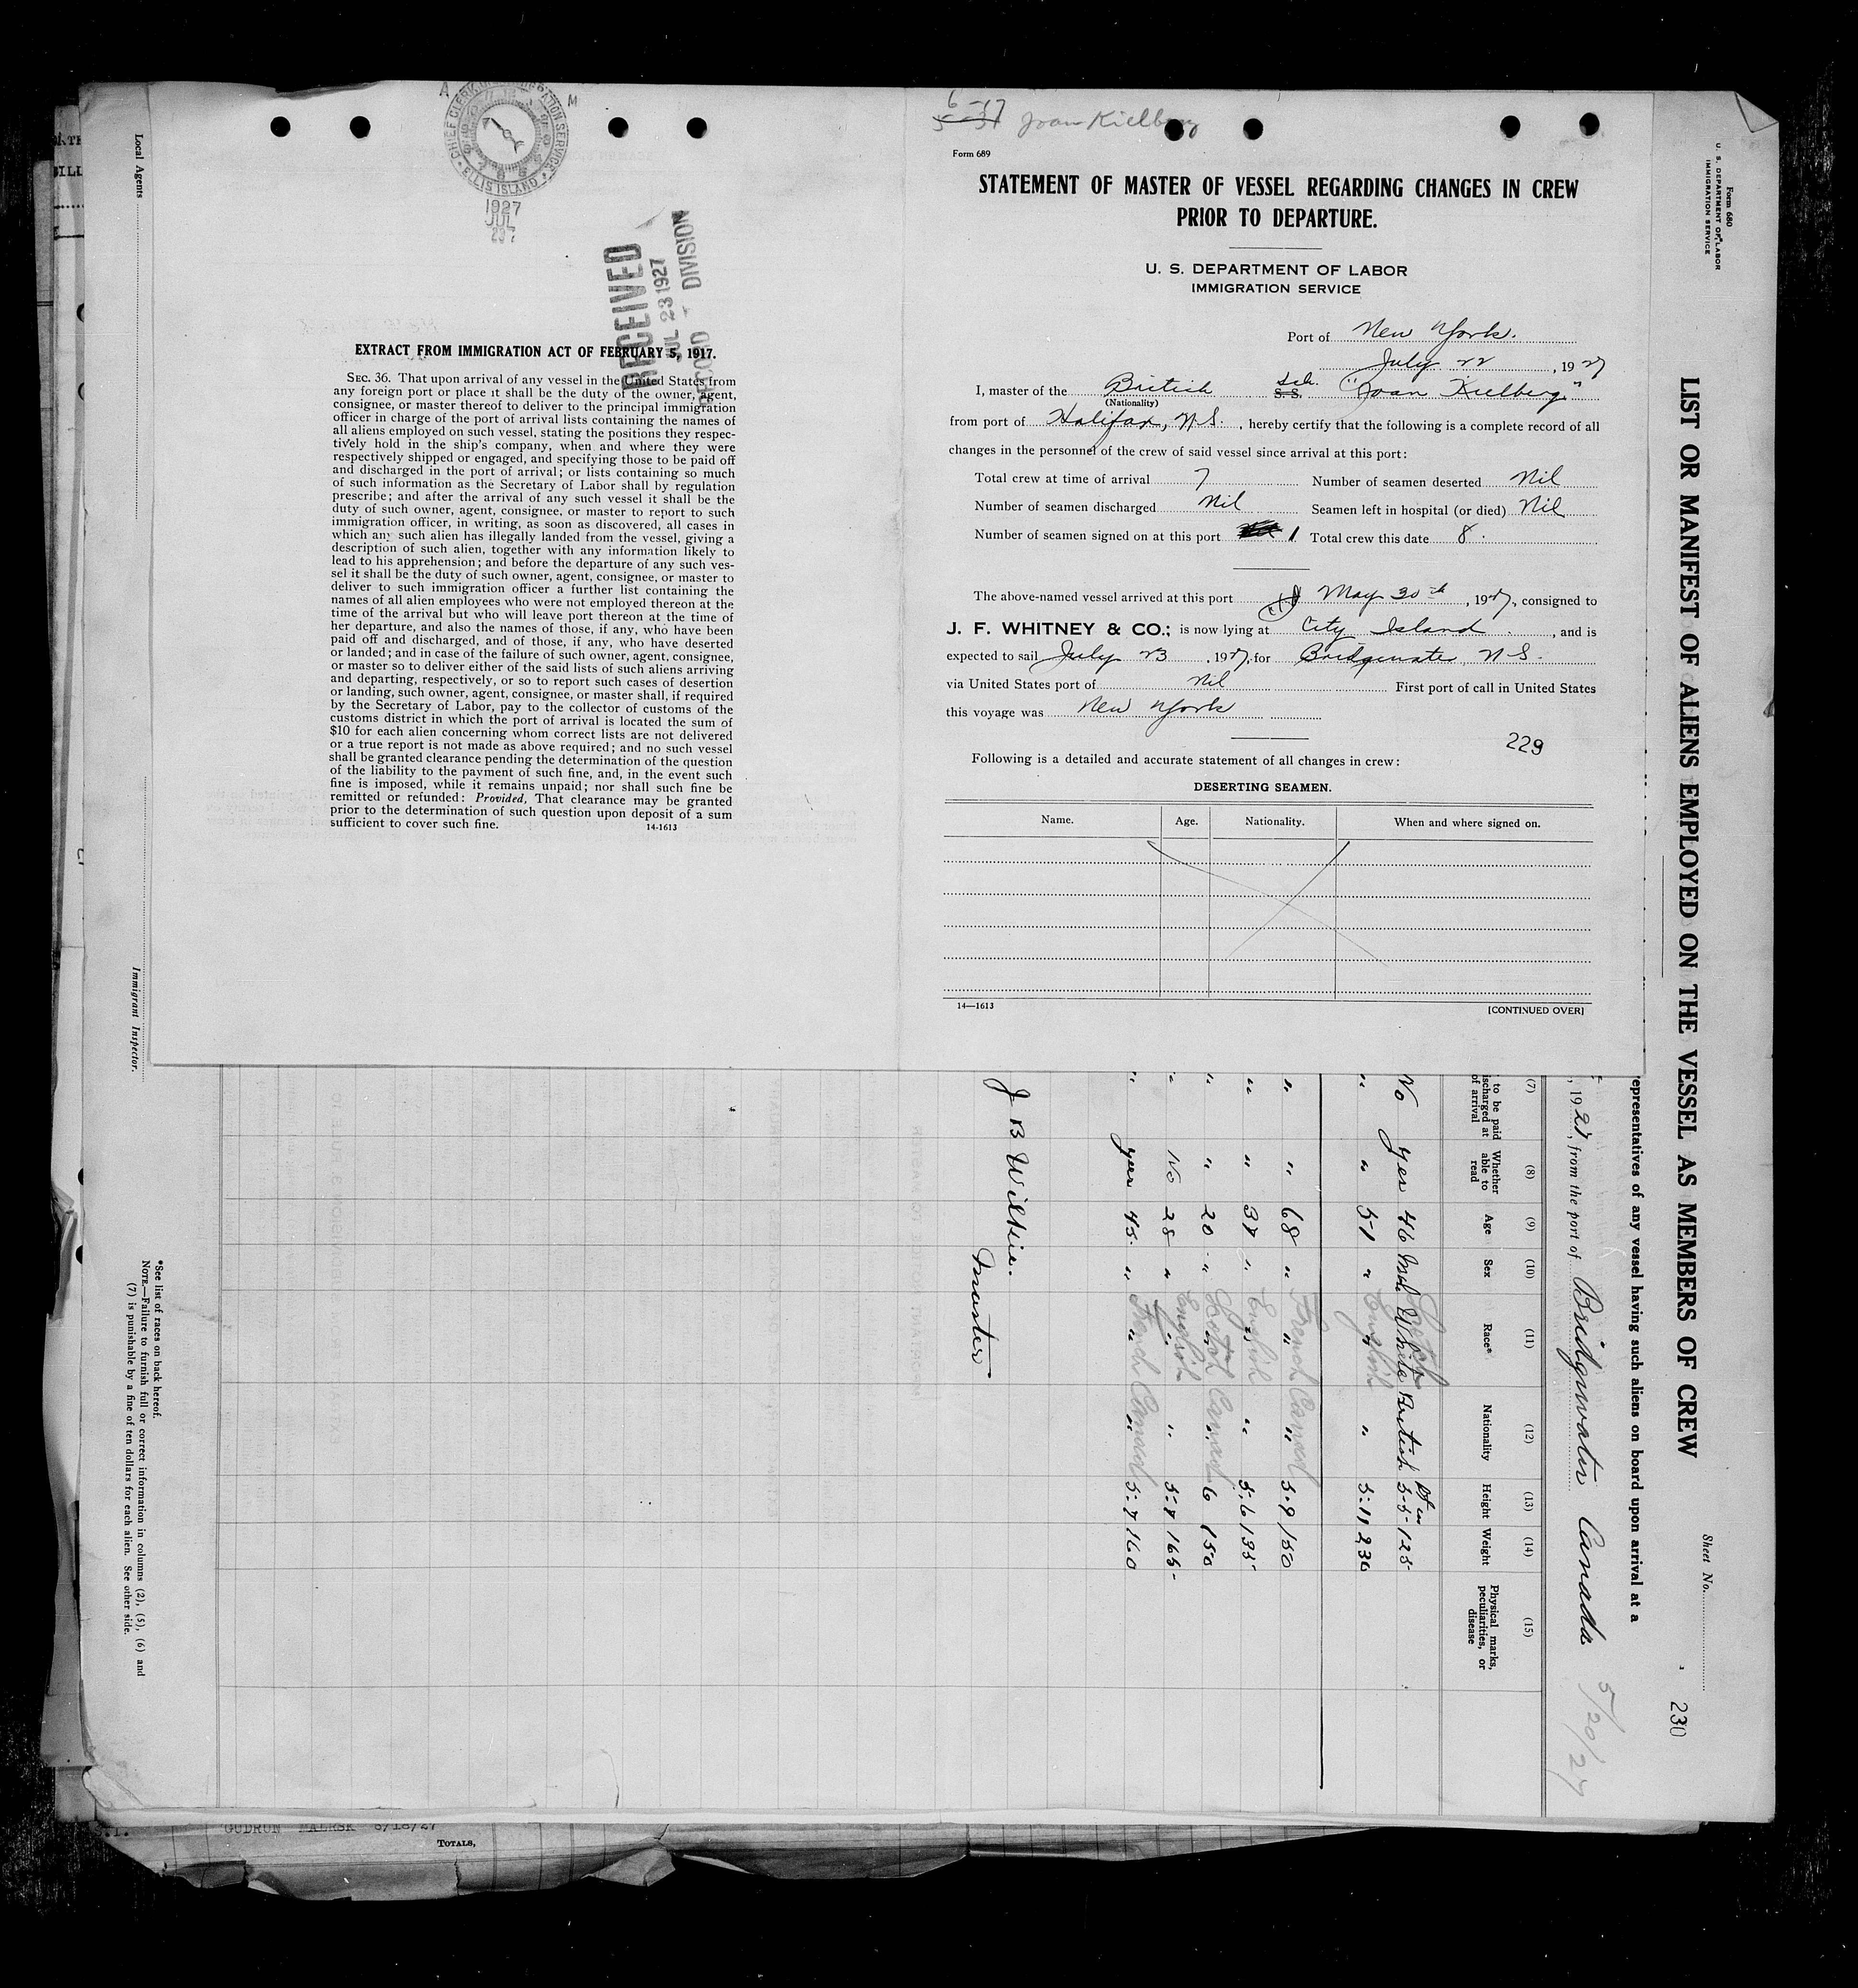 CHIEF CLERK
ELLIS ISLAND
1927
JUL
237
RECEIVED
JUL 23 1927
RECORD DIVISION
EXTRACT FROM IMMIGRATION ACT OF FEBRUARY 5, 1917.
SEC. 36. That upon arrival of any vessel in the United States from
any foreign port or place it shall be the duty of the owner, agent,
consignee, or master thereof to deliver to the principal immigration
officer in charge of the port of arrival lists containing the names of
all aliens employed on such vessel, stating the positions they respec-
tively hold in the ship's company, when and where they were
respectively shipped or engaged, and specifying those to be paid off
and discharged in the port of arrival; or lists containing so much
of such information as the Secretary of Labor shall by regulation
prescribe; and after the arrival of any such vessel it shall be the
duty of such owner, agent, consignee, or master to report to such
immigration officer, in writing, as soon as discovered, all cases in
which any such alien has illegally landed from the vessel, giving a
description of such alien, together with any information likely to
lead to his apprehension; and before the departure of any such ves-
sel it shall be the duty of such owner, agent, consignee, or master to
deliver to such immigration officer a further list containing the
names of all alien employees who were not employed thereon at the
time of the arrival but who will leave port thereon at the time of
her departure, and also the names of those, if any, who have been
paid off and discharged, and of those, if any, who have deserted
or landed; and in case of the failure of such owner, agent, consignee,
or master so to deliver either of the said lists of such aliens arriving
and departing, respectively, or so to report such cases of desertion
or landing, such owner, agent, consignee, or master shall, if required
by the Secretary of Labor, pay to the collector of customs of the
customs district in which the port of arrival is located the sum of
$10 for each alien concerning whom correct lists are not delivered
or a true report is not made as above required; and no such vessel
shall be granted clearance pending the determination of the question
of the liability to the payment of such fine, and, in the event such
fine is imposed, while it remains unpaid; nor shall such fine be
remitted or refunded: Provided, That clearance may be granted
prior to the determination of such question upon deposit of a sum
sufficient to cover such fine.
14-1613
Joan Kielberg
Form 689
STATEMENT OF MASTER OF VESSEL REGARDING CHANGES IN CREW
PRIOR TO DEPARTURE.
U. S. DEPARTMENT OF LABOR
IMMIGRATION SERVICE
Port of New York.
July 22, 1927
I, master of the British Sch. S S "Joan Kielberg"
(Nationality)
from port of Halifax, N.S., hereby certify that the following is a complete record of all
changes in the personnel of the crew of said vessel since arrival at this port:
Total crew at time of arrival 7 Number of seamen deserted Nil
Number of seamen discharged Nil Seamen left in hospital (or died) Nil
Number of seamen signed on at this port 1 Total crew this date 8.
The above-named vessel arrived at this port May 30th, 1927, consigned to
J. F. WHITNEY & CO.; is now lying at City Island, and is
expected to sail July 23, 1927, for Bridgewater N S.
via United States port of Nil First port of call in United States
this voyage was New York
229
Following is a detailed and accurate statement of all changes in crew:
DESERTING SEAMEN.
Name. Age. Nationality. When and where signed on.
14—1613 [CONTINUED OVER]
Form 680
U. S. DEPARTMENT OF LABOR
IMMIGRATION SERVICE
LIST OR MANIFEST OF ALIENS EMPLOYED ON THE VESSEL AS MEMBERS OF CREW
Sheet No.
230
epresentatives of any vessel having such aliens on board upon arrival at a
, 1927, from the port of Bridgewater Canada 5/20/27
(7) (8) (9) (10) (11) (12) (13) (14) (15)
to be paid
ischarged at
of arrival
Whether
able to
read
Age
Sex
Race*
Nationality
Height
Weight
Physical marks,
peculiarities, or
disease
No yes 46 Mal White Scotch British 5-5- 125
" " 51 " " English " 5-11 230
" " 68 " " French Canad " 5-9 150
" " 37 " " English " 5-6 135
" " 20 " " Scotch Canad " 6 150
" No 28 " " English " 5-7 165
" yes 45 " " French Canad " 5-7 160
J B Wilkie.
Master
Local Agents
Immigrant Inspector.
*See list of races on back hereof.
NOTE.—Failure to furnish full or correct information in columns (2), (5), (6) and
(7) is punishable by a fine of ten dollars for each alien. See other side.
GUDRUN MAERSK 6/18/27
TOTALS,